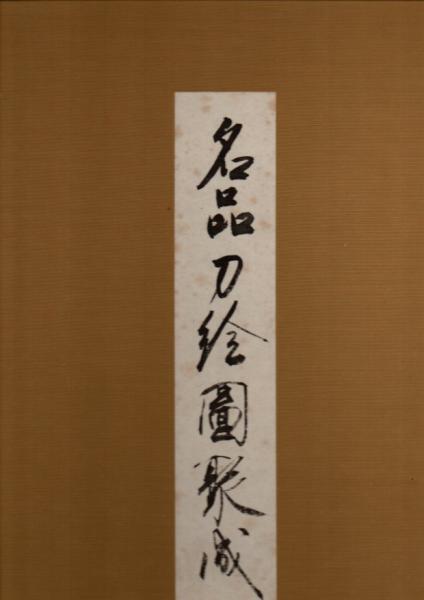 名品刀絵圖聚成